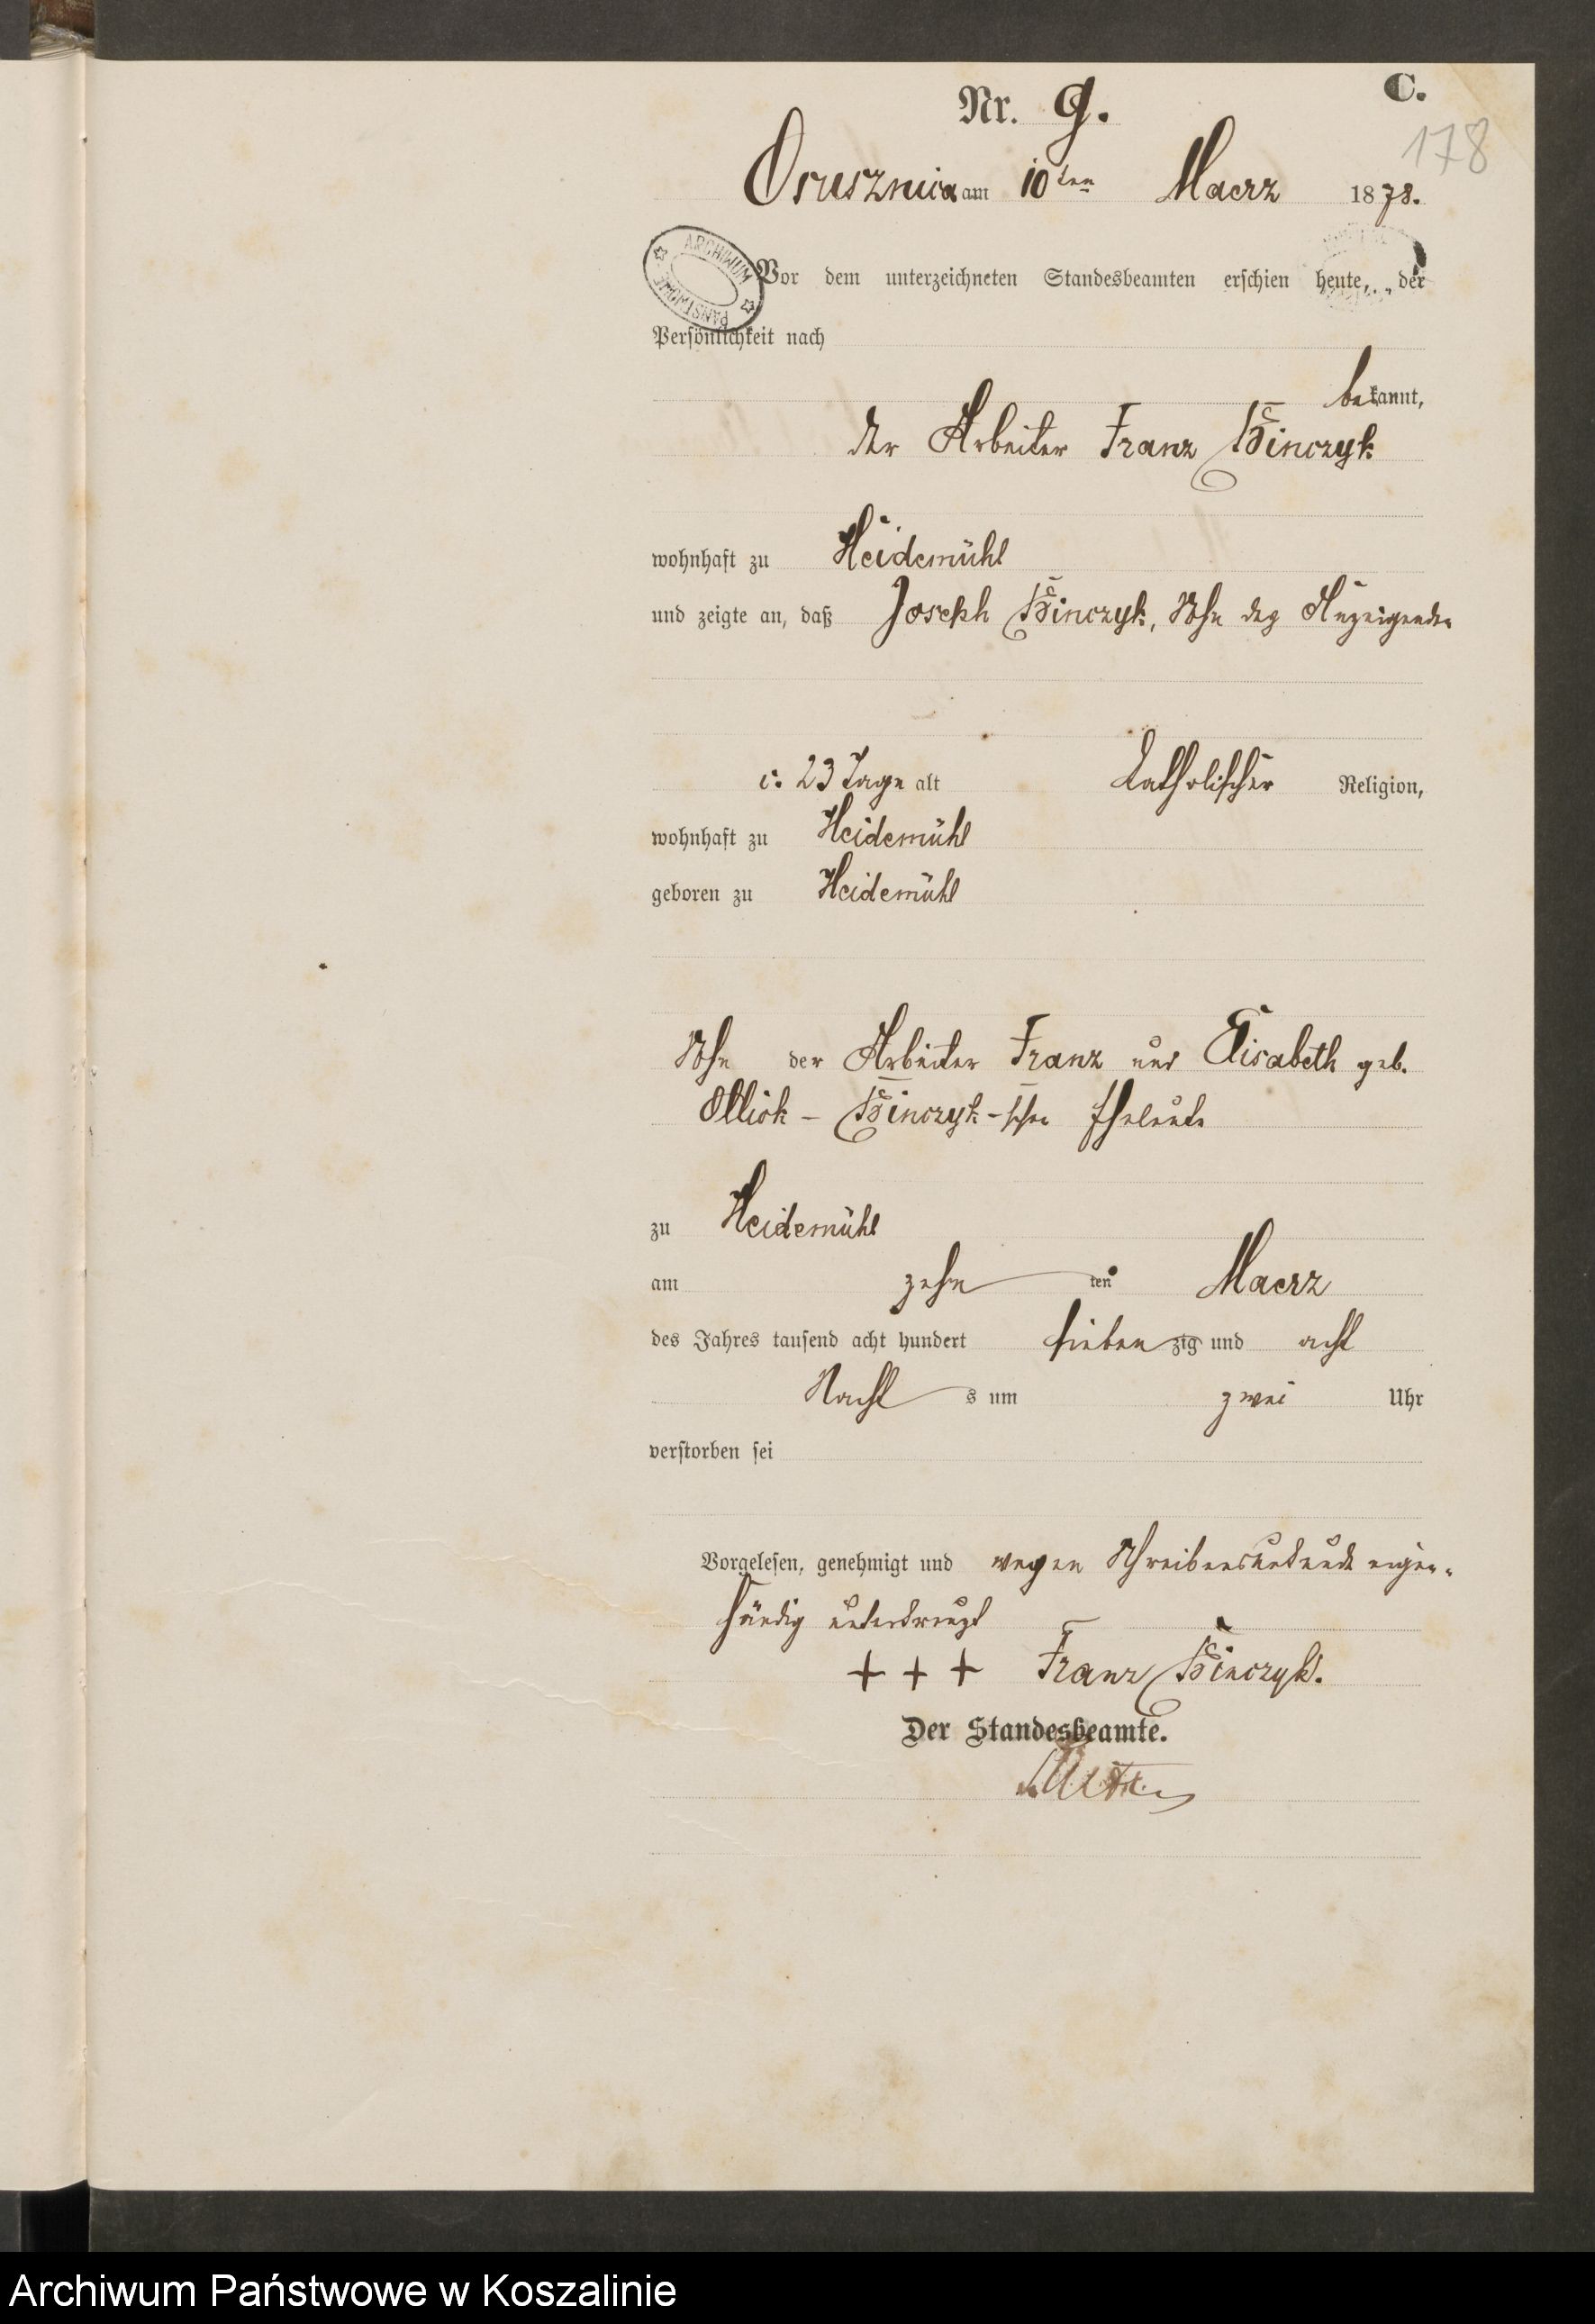 C.
Nr. 9.
178
Osusznica am 10ten Maerz 1878.
ARCHIWUM PAŃSTWOWE
Vor dem unterzeichneten Standesbeamten erschien heute, der
Persönlichkeit nach
bekannt,
der Arbeiter Franz
wohnhaft zu Heidemühl
und zeigte an, daß Joseph Sohn des Anzeigenden
c. 23 Tage alt katholischer Religion,
wohnhaft zu Heidemühl
geboren zu Heidemühl
Sohn der Arbeiter Franz und Elisabeth geb.
schen Eheleute
zu Heidemühl
am zehnten Maerz
des Jahres tausend acht hundert siebenzig und acht
Nachts um zwei Uhr
verstorben sei
Vorgelesen, genehmigt und wegen Schreibensunkunde eigen-
händig unterkreuzt
+ + + Franz
Der Standesbeamte.
Archiwum Państwowe w Koszalinie